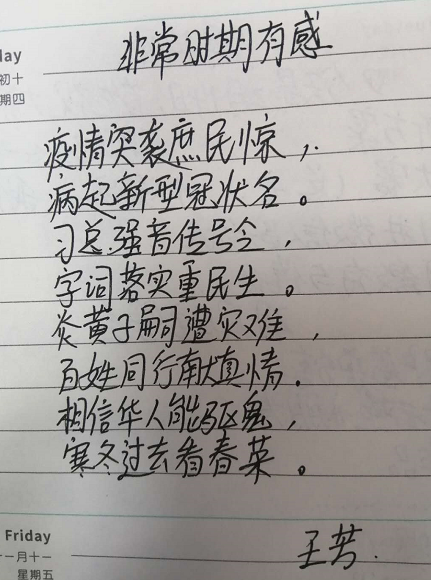 非常时期有感
day
初十
期四
疫情突袭庶民惊，
病起新型冠状名。
习总强音传号令，
字词落实重民生。
炎黄子嗣遭灾难，
百姓同行献真情．
相信华人能驱鬼，
寒冬过去看春英。
Friday
一月十一
星期五
王芳．